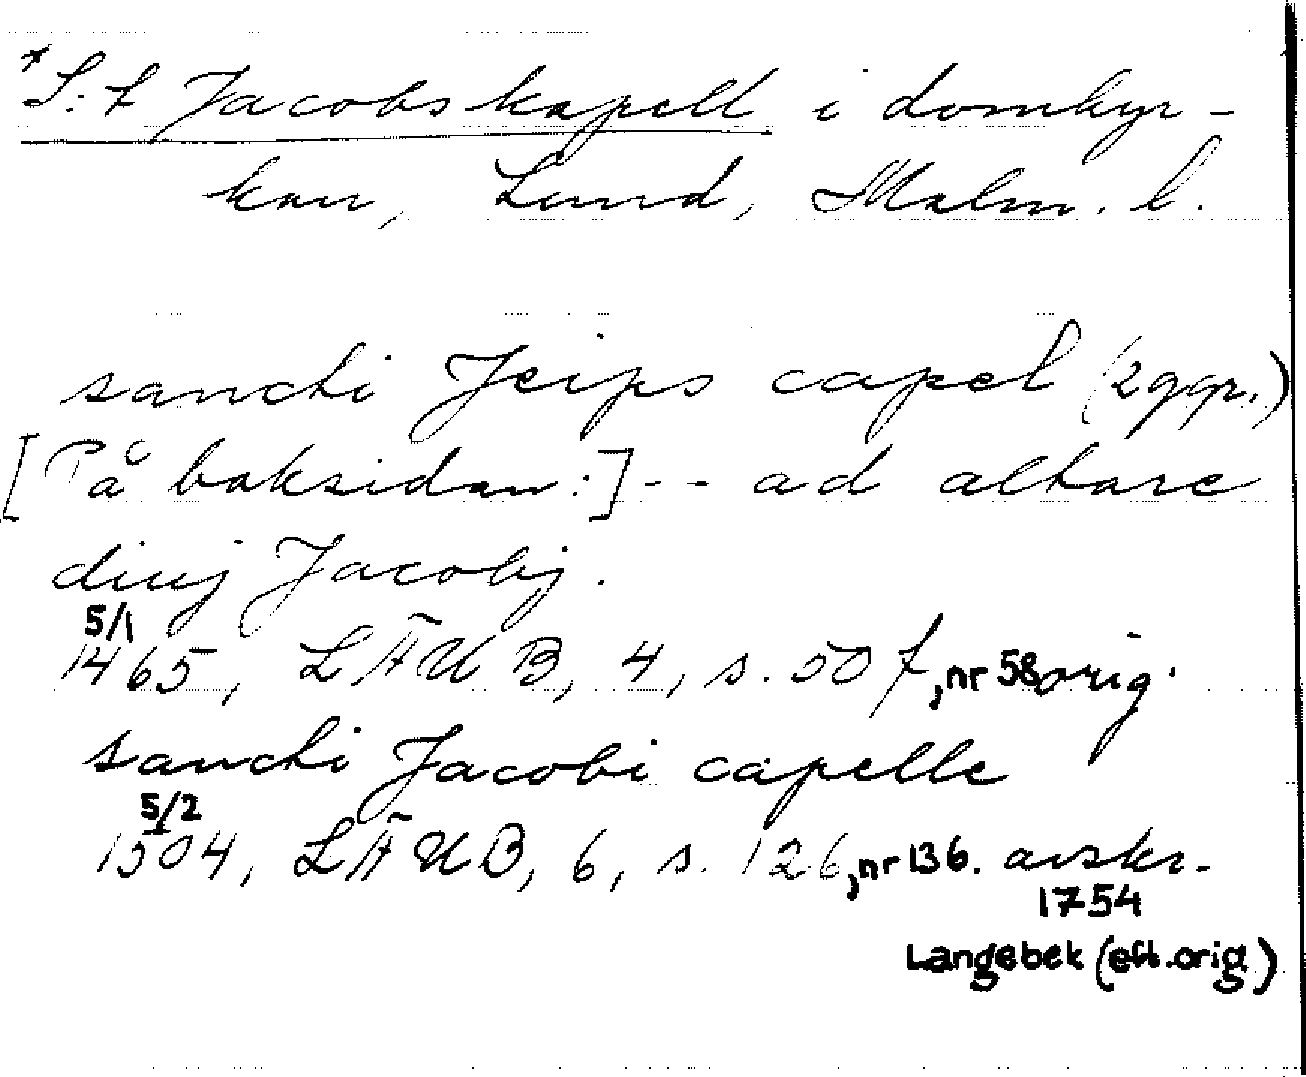 *S:t Jacobs kapell i domkyr-
kan, Lund, Malm. l.
sancti Jeips capel (2 ggr.)
[På baksidan:] -- ad altare
diuj Jacobj.
5/1
1465, LÄUB, 4, s. 50 f, nr 58 orig.
sancti Jacobi capelle
5/2
1504, LÄUB, 6, s. 126, nr 136. avskr.
1754
Langebek (eft. orig)